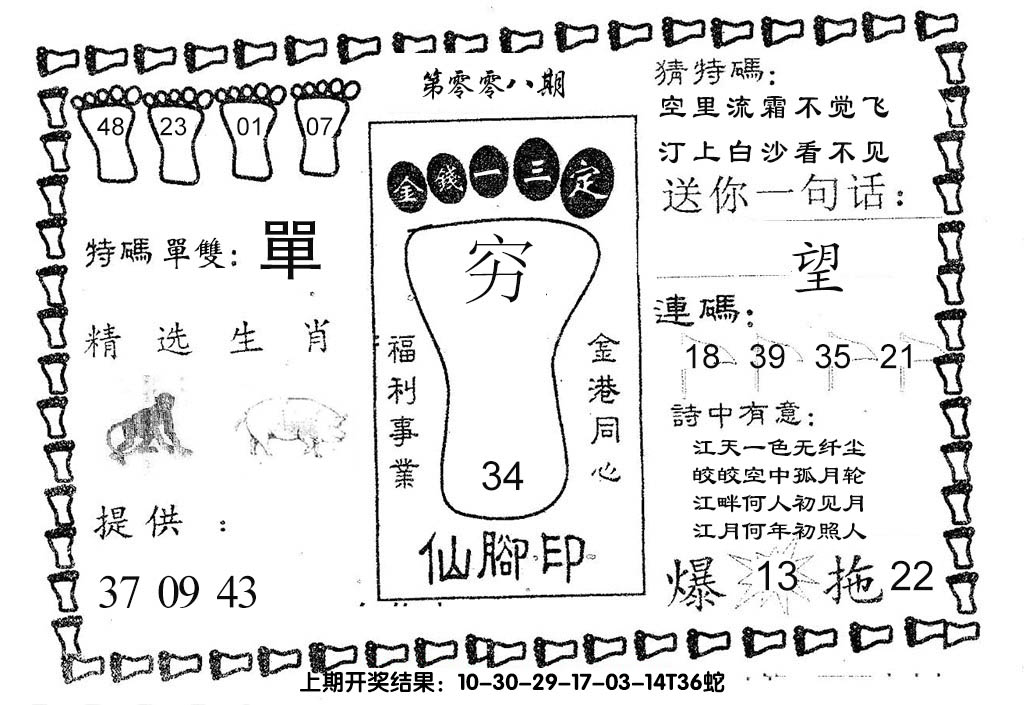 第零零八期
48 23 01 07
特碼單雙：單
精选生肖
提供：
37 09 43
金錢一三定
穷
福利事業
金港同心
34
仙腳印
猜特碼：
空里流霜不觉飞
汀上白沙看不见
送你一句话：
望
連碼：
18 39 35 21
詩中有意：
江天一色无纤尘
皎皎空中孤月轮
江畔何人初见月
江月何年初照人
爆 13 拖 22
上期开奖结果：10-30-29-17-03-14T36蛇